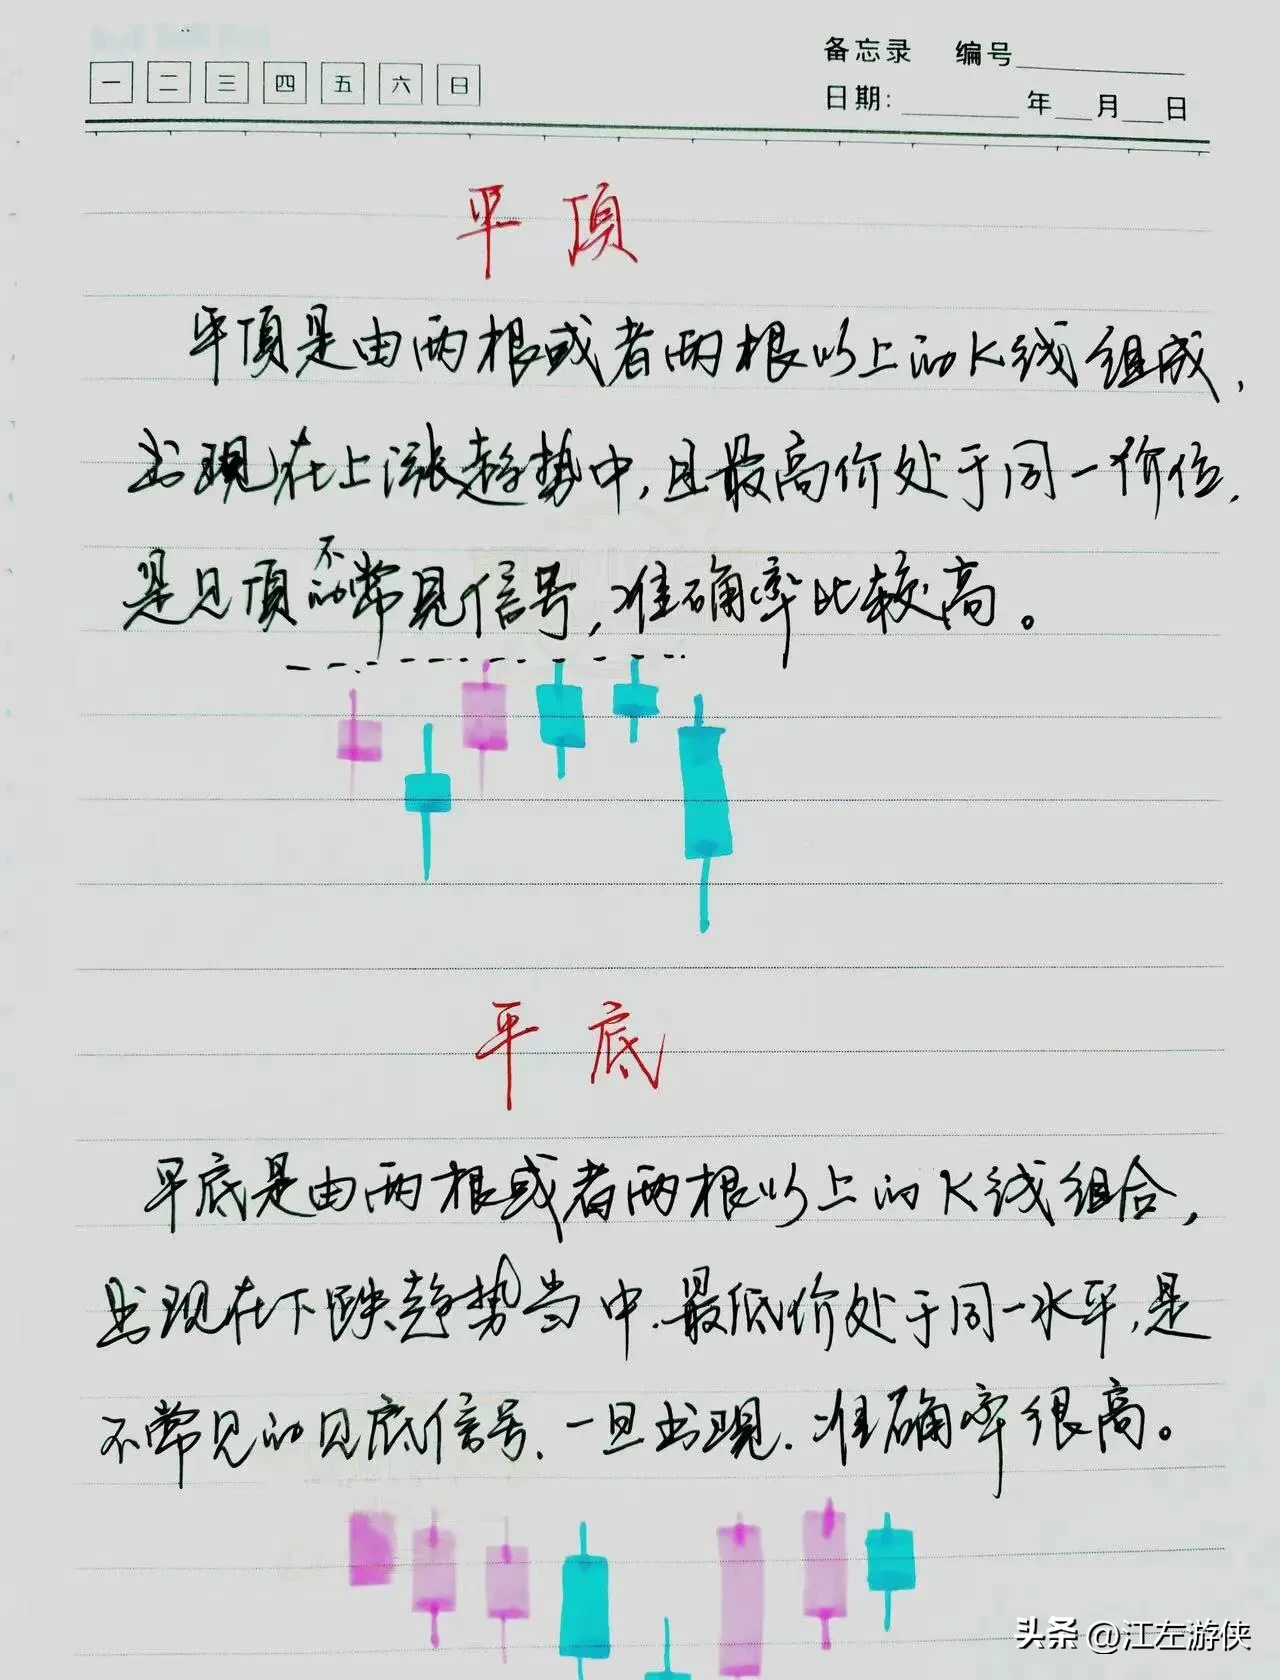 备忘录 编号
一 二 三 四 五 六 日
日期: 年 月 日
平頂
平頂是由两根或者两根以上的K线组成,
出现在上涨趋势中,且最高价处于同一价位,
是见頂的不常見信号,准确率比较高。
平底
平底是由两根或者两根以上的K线组合,
出现在下跌趋势当中.最低价处于同一水平,是
不常见的见底信号.一旦出现.准确率很高。
头条 @江左游侠